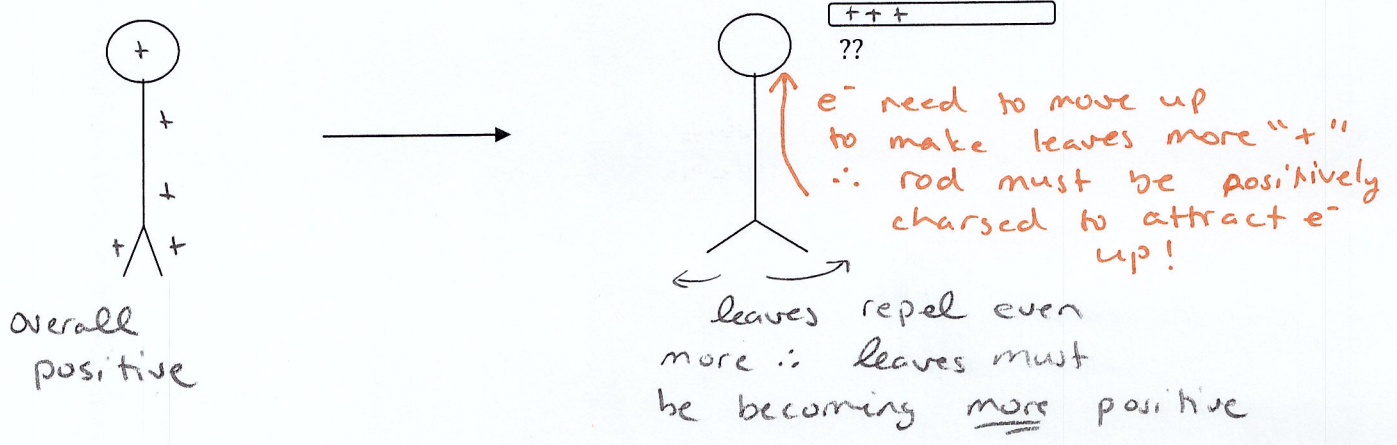 +
+
+
+ +
overall
positive
+ + +
??
e⁻ need to move up
to make leaves more "+"
∴ rod must be positively
charged to attract e⁻
up!
leaves repel even
more ∴ leaves must
be becoming more positive